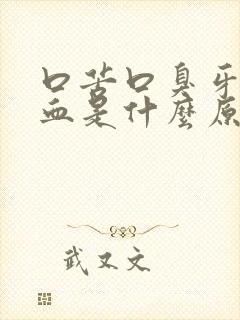 口苦口臭牙
血是什麼原
武又文